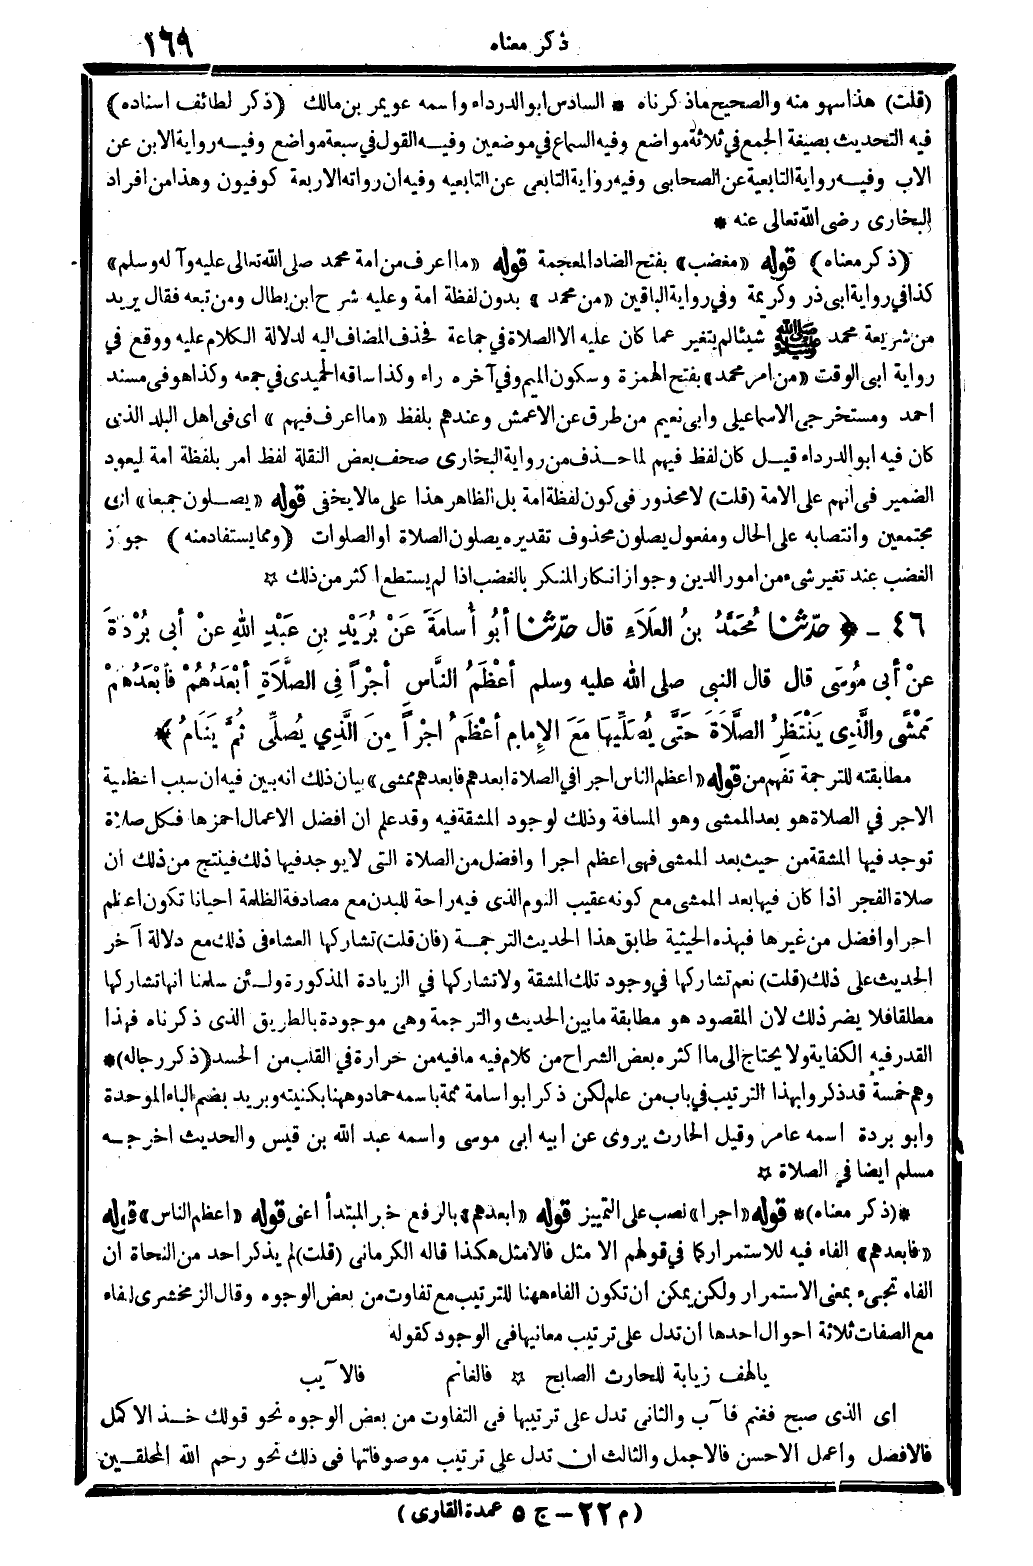 ذكر معناه
١٦٩
(قلت) هذا سهو منه والصحيح ماذكرناه * السادس ابو الدرداء واسمه عويمر بن مالك (ذكر لطائف اسناده)
فيه التحديث بصيغة الجمع في ثلاثة مواضع وفيه السماع في موضعين وفيه القول في سبعة مواضع وفيه رواية الابن عن
الاب وفيه رواية التابعية عن الصحابى وفيه رواية التابعى عن التابعيه وفيه ان رواته الاربعة كوفيون وهذا من افراد
البخارى رضى الله تعالى عنه *
(ذكر معناه) قوله «مغضب» بفتح الضاد المعجمة قوله «ما اعرف من امة محمد صلى الله تعالى عليه وآله وسلم»
كذا في رواية ابى ذر وكريمة وفي رواية الباقين «من محمد» بدون لفظة امة وعليه شرح ابن بطال ومن تبعه فقال يريد
من شريعة محمد ﷺ شيئا لم يتغير عما كان عليه الا الصلاة في جماعة فحذف المضاف اليه لدلالة الكلام عليه ووقع في
رواية ابى الوقت «من امر محمد» بفتح الهمزة وسكون الميم وفي آخره راء وكذا ساقه الحميدى في جمعه وكذا هو فى مسند
احمد ومستخرجى الاسماعيلى وابى نعيم من طرق عن الاعمش وعندهم بلفظ «ما اعرف فيهم» اى فى اهل البلد الذى
كان فيه ابو الدرداء قيل كان لفظ فيهم لما حذف من رواية البخارى صحف بعض النقلة لفظ امر بلفظة امة ليعود
الضمير فى انهم على الامة (قلت) لا محذور فى كون لفظة امة بل الظاهر هذا على ما لا يخفى قوله «يصلون جميعا» اى
مجتمعين وانتصابه على الحال ومفعول يصلون محذوف تقديره يصلون الصلاة او الصلوات (ومما يستفاد منه) جواز
الغضب عند تغير شىء من امور الدين وجواز انكار المنكر بالغضب اذا لم يستطع اكثر من ذلك ☆
٤٦ - ﴿ حدّثنا مُحَمَّدُ بنُ العَلَاءِ قال حدّثنا أبُو أُسامَةَ عَنْ بُرَيْدِ بنِ عَبْدِ اللهِ عنْ أبى بُرْدَةَ
عنْ أبى مُوسَى قال قال النبى صلى الله عليه وسلم أعْظَمُ النَّاسِ أجْراً فِى الصَّلَاةِ أبْعَدُهُمْ فأبْعَدُهُمْ
مَمْشًى والَّذِى يَنْتَظِرُ الصَّلَاةَ حَتَّى يُصَلِّيهَا مَعَ الإِمامِ أعْظَمُ اجْراً مِنَ الَّذِي يُصلِّى ثُمَّ يَنَامُ ﴾*
مطابقته للترجمة تفهم من قوله «اعظم الناس اجرا في الصلاة ابعدهم فابعدهم ممشى» بيان ذلك انه بين فيه ان سبب اعظمية
الاجر في الصلاة هو بعد الممشى وهو المسافة وذلك لوجود المشقة فيه وقد علم ان افضل الاعمال احمزها فكل صلاة
توجد فيها المشقة من حيث بعد الممشى فهى اعظم اجرا وافضل من الصلاة التى لا يوجد فيها ذلك فينتج من ذلك ان
صلاة الفجر اذا كان فيها بعد الممشى مع كونه عقيب النوم الذى فيه راحة للبدن مع مصادفة الظلمة احيانا تكون اعظم
اجرا وافضل من غيرها فبهذه الحيثية طابق هذا الحديث الترجمة (فان قلت) تشاركها العشاء فى ذلك مع دلالة آخر
الحديث على ذلك (قلت) نعم تشاركها في وجود تلك المشقة ولا تشاركها في الزيادة المذكورة ولئن سلمنا انها تشاركها
مطلقا فلا يضر ذلك لان المقصود هو مطابقة ما بين الحديث والترجمة وهى موجودة بالطريق الذى ذكرناه فهذا
القدر فيه الكفاية ولا يحتاج الى ما اكثره بعض الشراح من كلام فيه ما فيه من حرارة في القلب من الحسد (ذكر رجاله)*
وهم خمسة قد ذكروا بهذا الترتيب في باب من علم لكن ذكر ابو اسامة ثمة باسمه حماد وههنا بكنيته وبريد بضم الباء الموحدة
وابو بردة اسمه عامر وقيل الحارث يروى عن ابيه ابى موسى واسمه عبد الله بن قيس والحديث اخرجه
مسلم ايضا في الصلاة ☆
*(ذكر معناه)* قوله «اجرا» نصب على التمييز قوله «ابعدهم» بالرفع خبر المبتدأ اعنى قوله «اعظم الناس» قوله
«فابعدهم» الفاء فيه للاستمرار كما في قولهم الامثل فالامثل هكذا قاله الكرمانى (قلت) لم يذكر احد من النحاة ان
الفاء تجىء بمعنى الاستمرار ولكن يمكن ان تكون الفاء ههنا للترتيب مع تفاوت من بعض الوجوه وقال الزمخشرى لفاء
مع الصفات ثلاثة احوال احدها ان تدل على ترتيب معانيها فى الوجود كقوله
يالهف زيابة للحارث الصابح ☆ فالغانم فالآيب
اى الذى صبح فغنم فآب والثانى تدل على ترتيبها فى التفاوت من بعض الوجوه نحو قولك خذ الاكمل
فالافضل واعمل الاحسن فالاجمل والثالث ان تدل على ترتيب موصوفاتها فى ذلك نحو رحم الله المحلقين
(م ٢٢ - ج ٥ عمدة القارى)